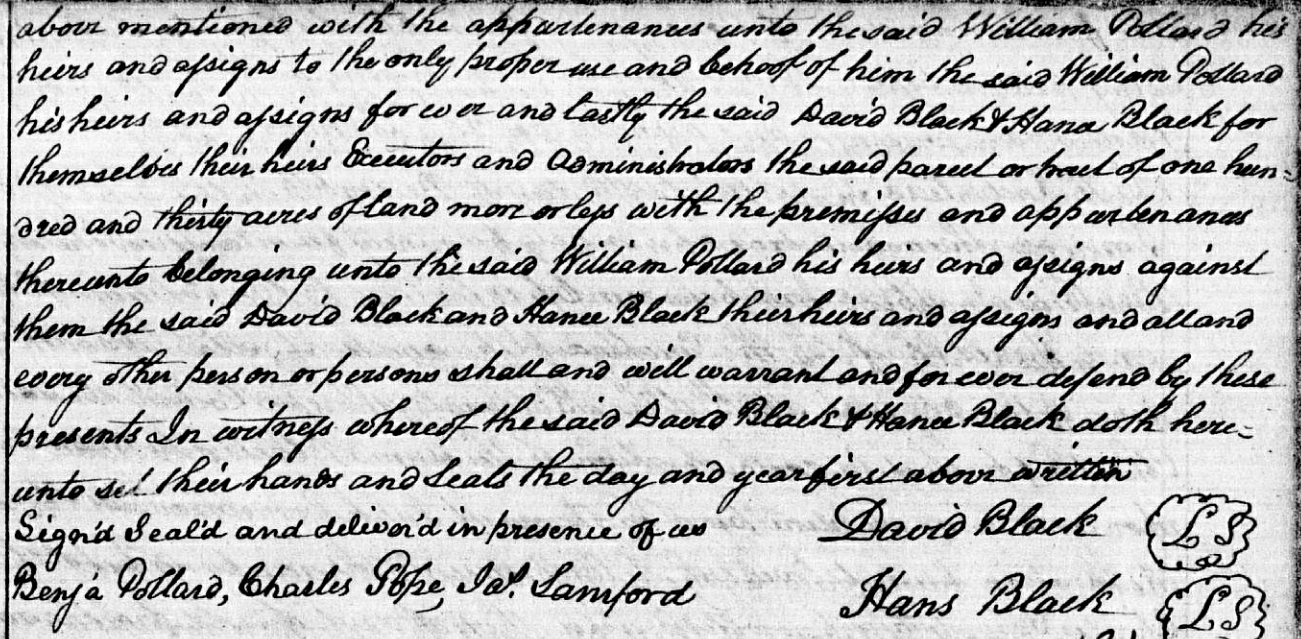 above mentioned with the appurtenances unto the said William Pollard his
heirs and assigns to the only proper use and behoof of him the said William Pollard
his heirs and assigns for ever and lastly the said David Black & Hance Black for
themselves their heirs Executors and Administrators the said parcel or tract of one hun=
dred and thirty acres of land more or less with the premisses and appurtenances
thereunto belonging unto the said William Pollard his heirs and assigns against
them the said David Black and Hance Black their heirs and assigns and all and
every other person or persons shall and will warrant and for ever defend by these
presents In witness whereof the said David Black & Hance Black doth here=
unto set their hands and seals the day and year first above written
Sign'd Seal'd and deliver'd in presence of us David Black LS
Benja Pollard, Charles Pope, Jas. Samford Hans Black LS